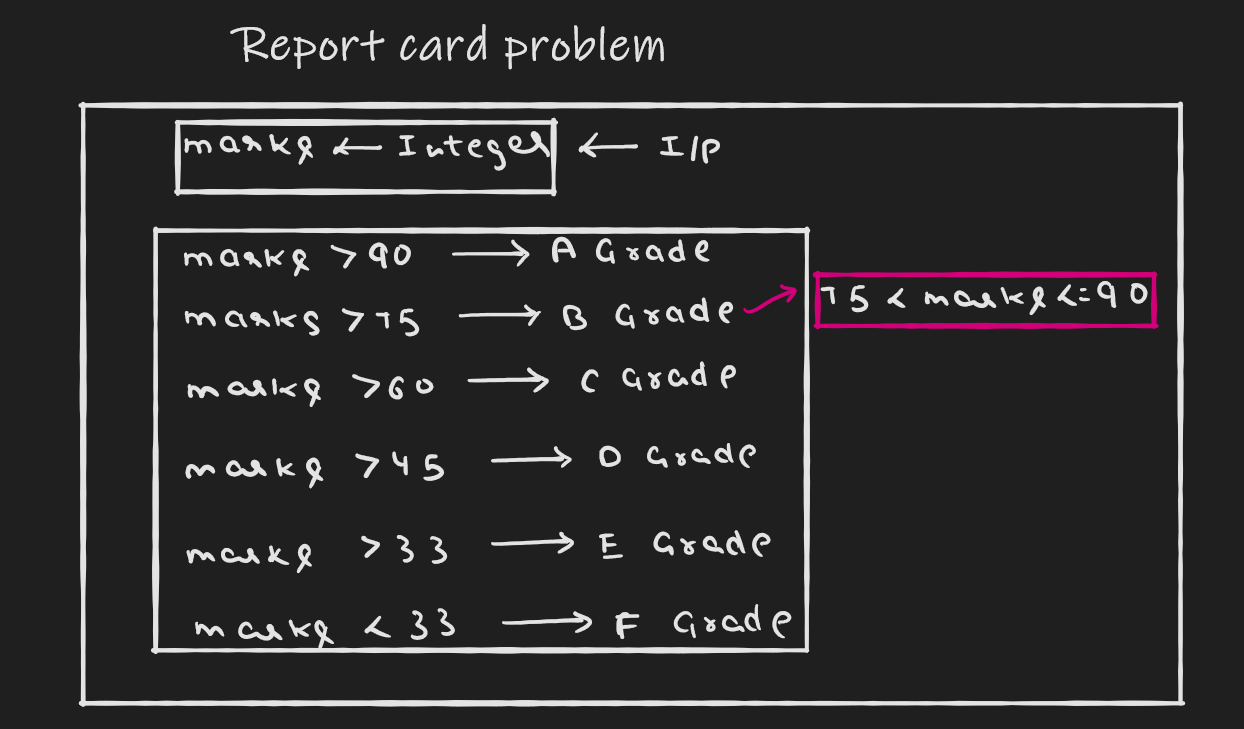 Report card problem
marks ← Integer ← I/P
marks > 90 → A Grade
marks > 75 → B Grade
75 < marks <= 90
marks > 60 → C Grade
marks > 45 → D Grade
marks > 33 → E Grade
marks < 33 → F Grade